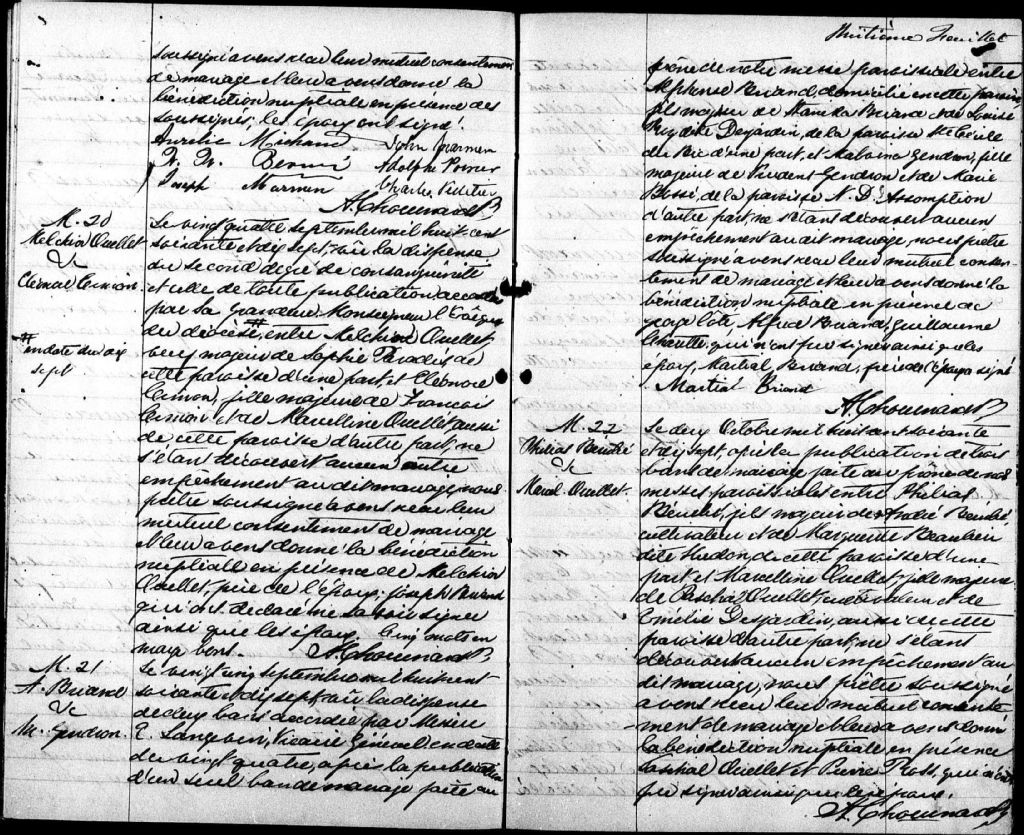 soussigné avons reçu leur mutuel consentement
de mariage et leur avons donné la
bénédiction nuptiale en présence des
soussignés; les époux ont signé.
Aurélie Michaud John Marmen
Bernié Adolphe Poirier
Joseph Marmen Charles Pelletier
A. Chouinard P
M. 20
Melchior Ouellet
&
Eléonore Lemon.
# en date du dix
sept
Le vingt quatre septembre mil huit cent
soixante et dix sept, vu la dispense
du second degré de consanguinité
et celle de toute publication accordée
par Sa Grandeur Monseigneur l'Evêque
du diocèse, # entre Melchior Ouellet
veuf majeur de Sophie Paradis, de
cette paroisse d'une part, et Eléonore
Lemon, fille majeure de Francois
Lemon et de Marcelline Ouellet aussi
de cette paroisse d'autre part, ne
s'étant découvert aucun autre
empêchement au dit mariage, nous
prêtre soussigné avons reçu leur
mutuel consentement de mariage
et leur avons donné la bénédiction
nuptiale en présence de Melchior
Ouellet, père de l'époux, Joseph
qui ont déclaré ne savoir signer
ainsi que les époux. Cinq mots en
marge bons. A. Chouinard P.
M. 21
A. Briand
&
M. Gendron.
Le vingt cinq septembre mil huit cent
soixante et dix sept, vu la dispense
de deux bans accordée par Messire
E. Langevin, Vicaire Général en date
du vingt quatre, après la publication
d'un seul ban de mariage faite au
Huitième Feuillet
prône de notre messe paroissiale entre
Alphonse Briand, domicilié en cette paroisse
fils majeur de Stanislas Briand et de Louise
Roy dite Desjardin, de la paroisse Ste Cécile
du Bic d'une part, et Malvina Gendron, fille
majeure de Prudent Gendron et de Marie
Bossé, de la paroisse N. D. Assomption
d'autre part, ne s'étant découvert aucun
empêchement au dit mariage, nous prêtre
soussigné avons reçu leur mutuel consen-
tement de mariage et leur avons donné la
bénédiction nuptiale en présence de
Côté, Alfred Briand, Guillaume
qui n'ont pu signer ainsi que les
époux, Martial Briand, frère de l'époux a signé.
Martial Briand
A. Chouinard P
M. 22
Philias Beaulé
&
Marcel. Ouellet.
Le deux Octobre mil huit cent soixante
et dix sept, après la publication de trois
bans de mariage faite au prône de nos
messes paroissiales entre Philias
fils majeur de André
cultivateur et de Marguerite Beaulieu
dite Hudon de cette paroisse d'une
part et Marcelline Ouellet, fille majeure
de Paschal Ouellet, cultivateur et de
Emélie Desjardin, aussi de cette
paroisse d'autre part, ne s'étant
découvert aucun empêchement au
dit mariage, nous prêtre soussigné
avons reçu leur mutuel consente-
ment de mariage et leur avons donné
la bénédiction nuptiale en présence
Paschal Ouellet et Pierre Ross, qui n'ont
pu signer ainsi que les époux.
A. Chouinard P